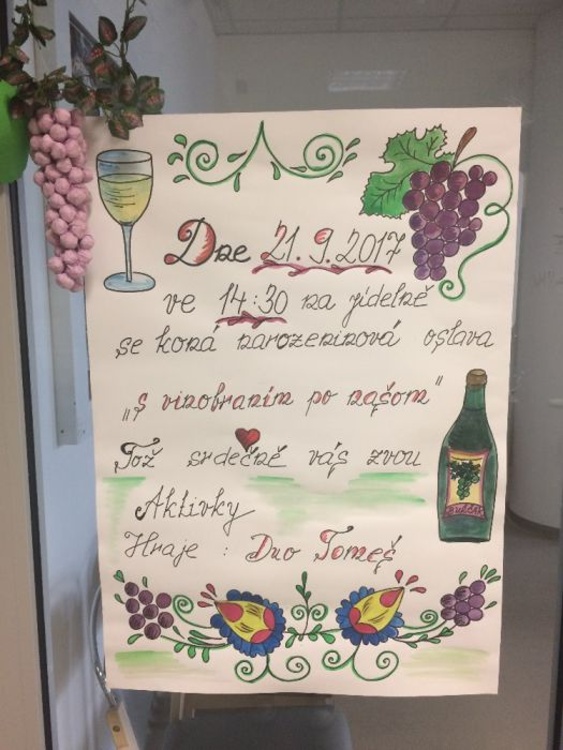 Dne 21.9.2017
ve 14:30 na jídelně
se koná narozeninová oslava
„S vinobraním po našom"
Tož srdečně vás zvou
Aktivky
Hraje : Duo Tomeš